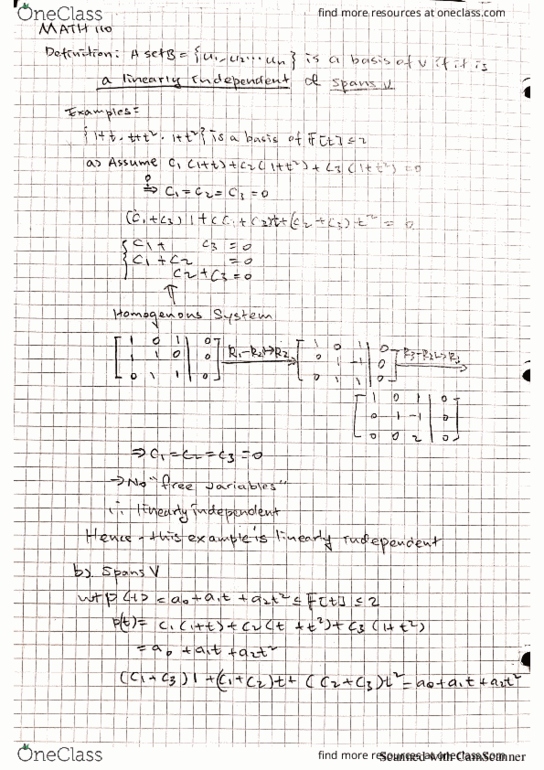 OneClass
find more resources at oneclass.com
MATH 110
Definition: A set B = {u1, u2 ... un} is a basis of V if it is
a linearly independent & spans V
Examples:
{1+t, t+t², 1+t²} is a basis of F[t] ≤ 2
a) Assume C1(1+t)+C2(1+t²)+C3(1+t²) = 0
?
⇒ C1 = C2 = C3 = 0
(C1+C3)1+(C1+C2)t+(C2+C3)t² = 0
C1+ C3 = 0
C1+C2 = 0
C2+C3 = 0
⇑
Homogenous System
[1 0 1 | 0] R1-R2→R2 [1 0 1 | 0] R3-R2→R3
[1 1 0 | 0] [0 1 -1 | 0]
[0 1 1 | 0] [0 1 1 | 0]
[1 0 1 | 0]
[0 1 -1 | 0]
[0 0 2 | 0]
⇒ C1 = C2 = C3 = 0
→ No "free variables"
∴ linearly independent
Hence - this example is linearly independent
b). Spans V
p(t) = a0+a1t+a2t² ≤ F[t] ≤ 2
p(t) = C1(1+t)+C2(t+t²)+C3(1+t²)
= a0+a1t+a2t²
((C1+C3)1+(C1+C2)t+((C2+C3)t² = a0+a1t+a2t²
OneClass
find more resources at oneclass.com
Scanned with CamScanner